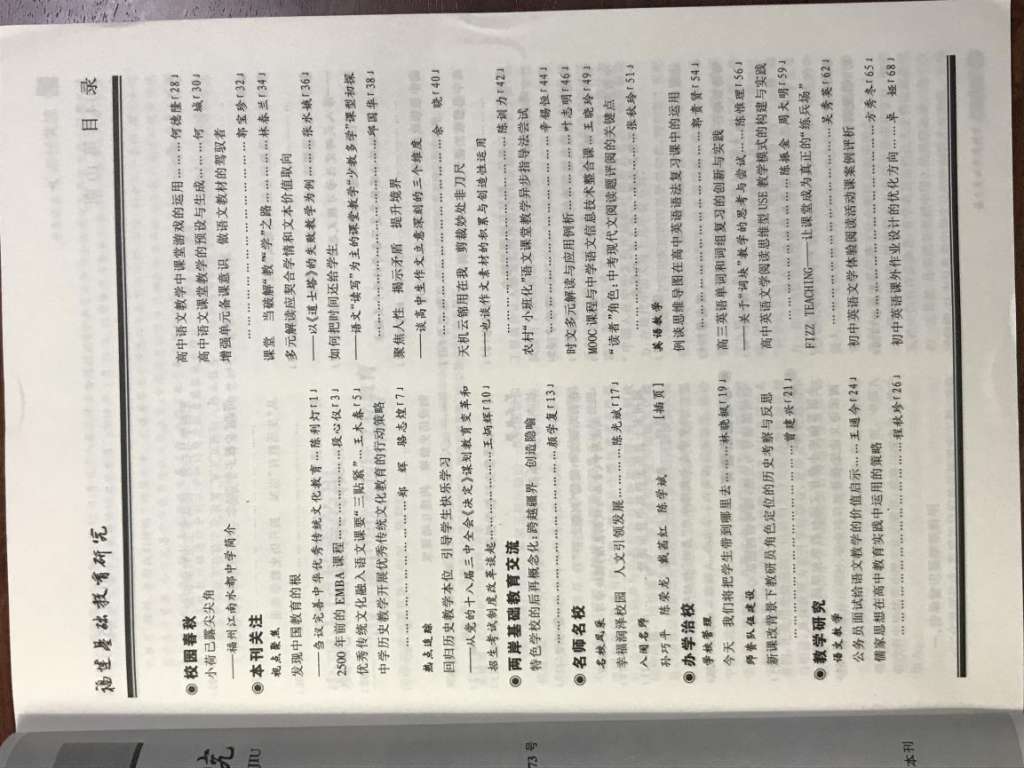 福建基础教育研究
目 录
◉校园春秋
小荷已露尖尖角
——福州江南水都中学简介
◉本刊关注
视点聚焦
发现中国教育的根
——刍议完善中华优秀传统文化教育…陈利灯〔1〕
2500年前的EMBA课程……………段心仪〔3〕
优秀传统文化融入语文课要“三贴紧”…王木春〔5〕
中学历史教学开展优秀传统文化教育的行动策略
………………………郑 辉 骆志煌〔7〕
热点追踪
回归历史教学本位 引导学生快乐学习
——从党的十八届三中全会《决定》谋划教育变革和
招生考试制度改革谈起………………王炳辉〔10〕
◉两岸基础教育交流
特色学校的后再概念化:跨越疆界 创造隐喻
…………………………………颜学复〔13〕
◉名师名校
名校风采
幸福润泽校园 人文引领发展………陈光斌〔17〕
入围名师
孙巧平 陈荣龙 戴茜红 陈学斌 [插页]
◉办学治校
学校管理
今天 我们将把学生带到哪里去……林晓枫〔19〕
师资队伍建设
新课改背景下教研员角色定位的历史考察与反思
…………………………………曾建兴〔21〕
◉教学研究
语文教学
公务员面试给语文教学的价值启示……王通今〔24〕
儒家思想在高中教育实践中运用的策略
…………………………………程秋珍〔26〕
高中语文教学中课堂游戏的运用………何德隆〔28〕
高中语文课堂教学的预设与生成………何 城〔30〕
增强单元备课意识 做语文教材的驾驭者
…………………………………郭宝珍〔32〕
课堂 当破解“教”“学”之路…………林春兰〔34〕
多元解读应契合学情和文本价值取向
——以《道士塔》的失败教学为例……张水娥〔36〕
如何把时间还给学生
——语文“读写”为主的课堂教学“少教多学”课型初探
…………………………………邱国华〔38〕
聚焦人性 揭示矛盾 提升境界
——谈高中生作文立意深刻的三个维度
…………………………………余 晓〔40〕
天机云锦用在我 剪裁妙处非刀尺
——也谈作文素材的积累与创造性运用
…………………………………陈训力〔42〕
农村“小班化”语文课堂教学异步指导法尝试
…………………………………辛锡恒〔44〕
时文多元解读与应用例析……………叶志明〔46〕
MOOC课程与中学语文信息技术整合课…王晓玲〔49〕
“读者”角色:中考现代文阅读题评阅的关键点
…………………………………张秋玲〔51〕
英语教学
例谈思维导图在高中英语语法复习课中的运用
…………………………………郭贵贤〔54〕
高三英语单词和词组复习的创新与实践
——关于“词块”教学的思考与尝试……陈惟理〔56〕
高中英语文学阅读思维型USE教学模式的构建与实践
…………………………陈振金 周大明〔59〕
FIZZ TEACHING——让课堂成为真正的“练兵场”
…………………………………吴秀英〔62〕
初中英语文学体验阅读活动课案例评析
…………………………………方秀冬〔65〕
初中英语课外作业设计的优化方向……卓 娅〔68〕
究
JIU
73号
本刊